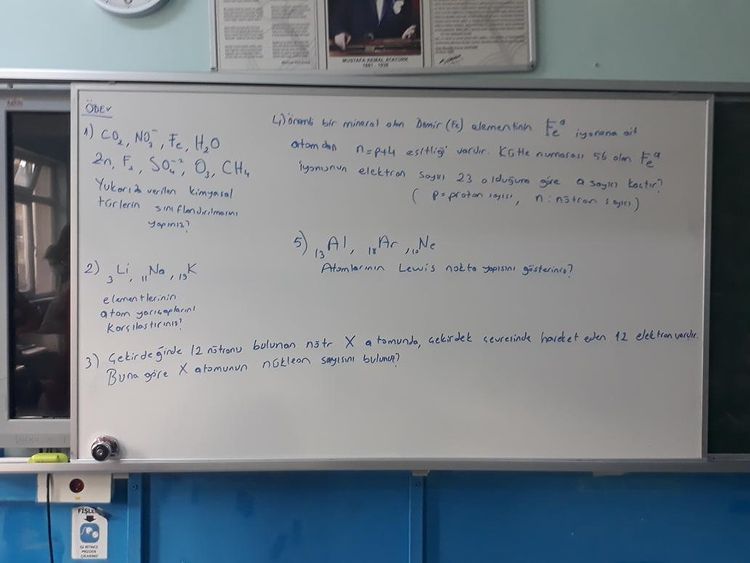 MUSTAFA KEMAL ATATÜRK
1881 - 1938
ÖDEV
1) CO2, NO3⁻, Fe, H2O
Zn, F2, SO4⁻², O3, CH4
Yukarıda verilen kimyasal
türlerin sınıflandırılmasını
yapınız?
2) 3Li, 11Na, 19K
elementlerinin
atom yarıçaplarını
Karşılaştırınız?
3) Çekirdeğinde 12 nötronu bulunan nötr X atomunda, çekirdek çevresinde hareket eden 12 elektron vardır.
Buna göre X atomunun nükleon sayısını bulunuz?
4) Önemli bir mineral olan Demir (Fe) elementinin Feᵃ iyonuna ait
atomdan n=p+4 eşitliği vardır. Kütle numarası 56 olan Feᵃ
iyonunun elektron sayısı 23 olduğuna göre a sayısı kaçtır?
( p=proton sayısı, n:nötron sayısı)
5) 13Al, 18Ar, 10Ne
Atomlarının Lewis nokta yapısını gösteriniz?
FİŞLE